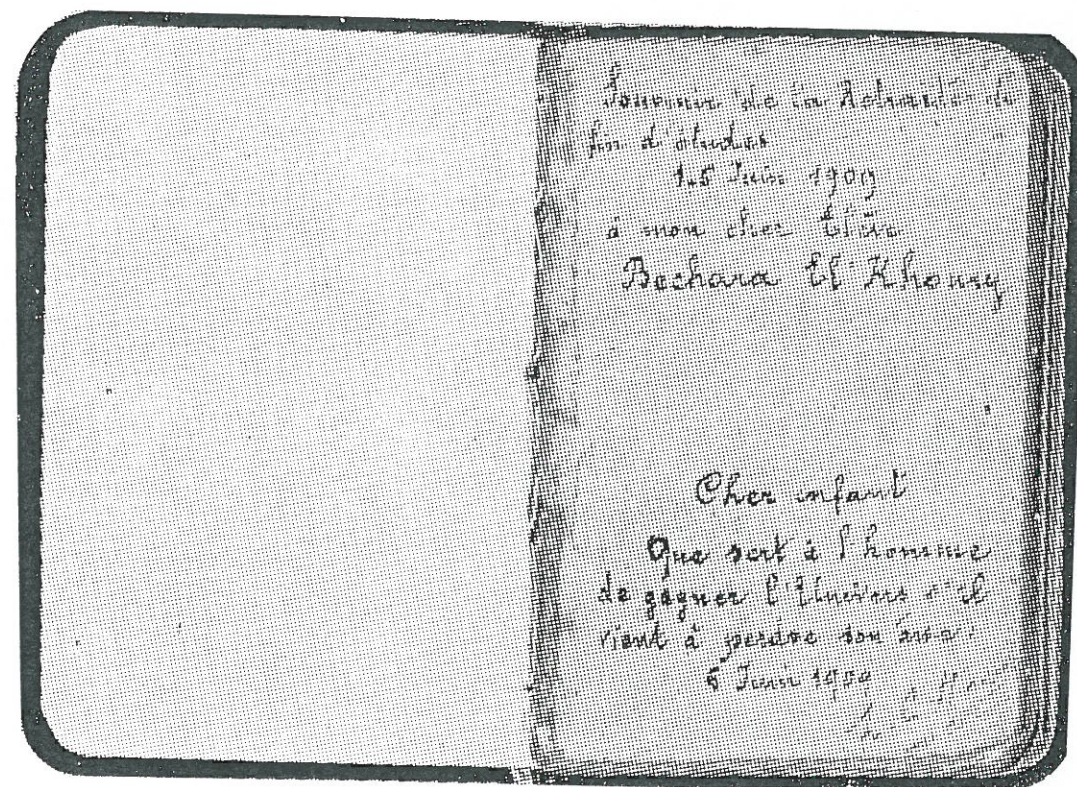 Souvenir de la Retraite de
fin d'études
1-5 Juin 1909
à mon cher Élève
Bechara El Khoury
Cher enfant
Que sert à l'homme
de gagner l'Univers s'il
vient à perdre son âme.
5 Juin 1909